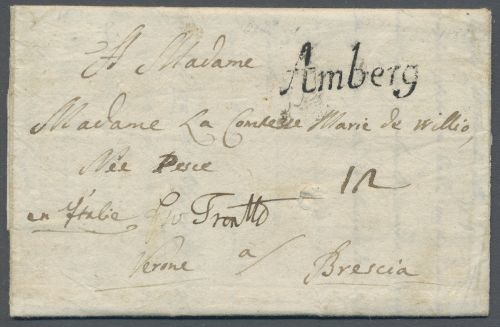 A Madame
Amberg
Madame La Comtesse Marie de Willio,
Née Pesce
12
en Italie
Verone a Brescia